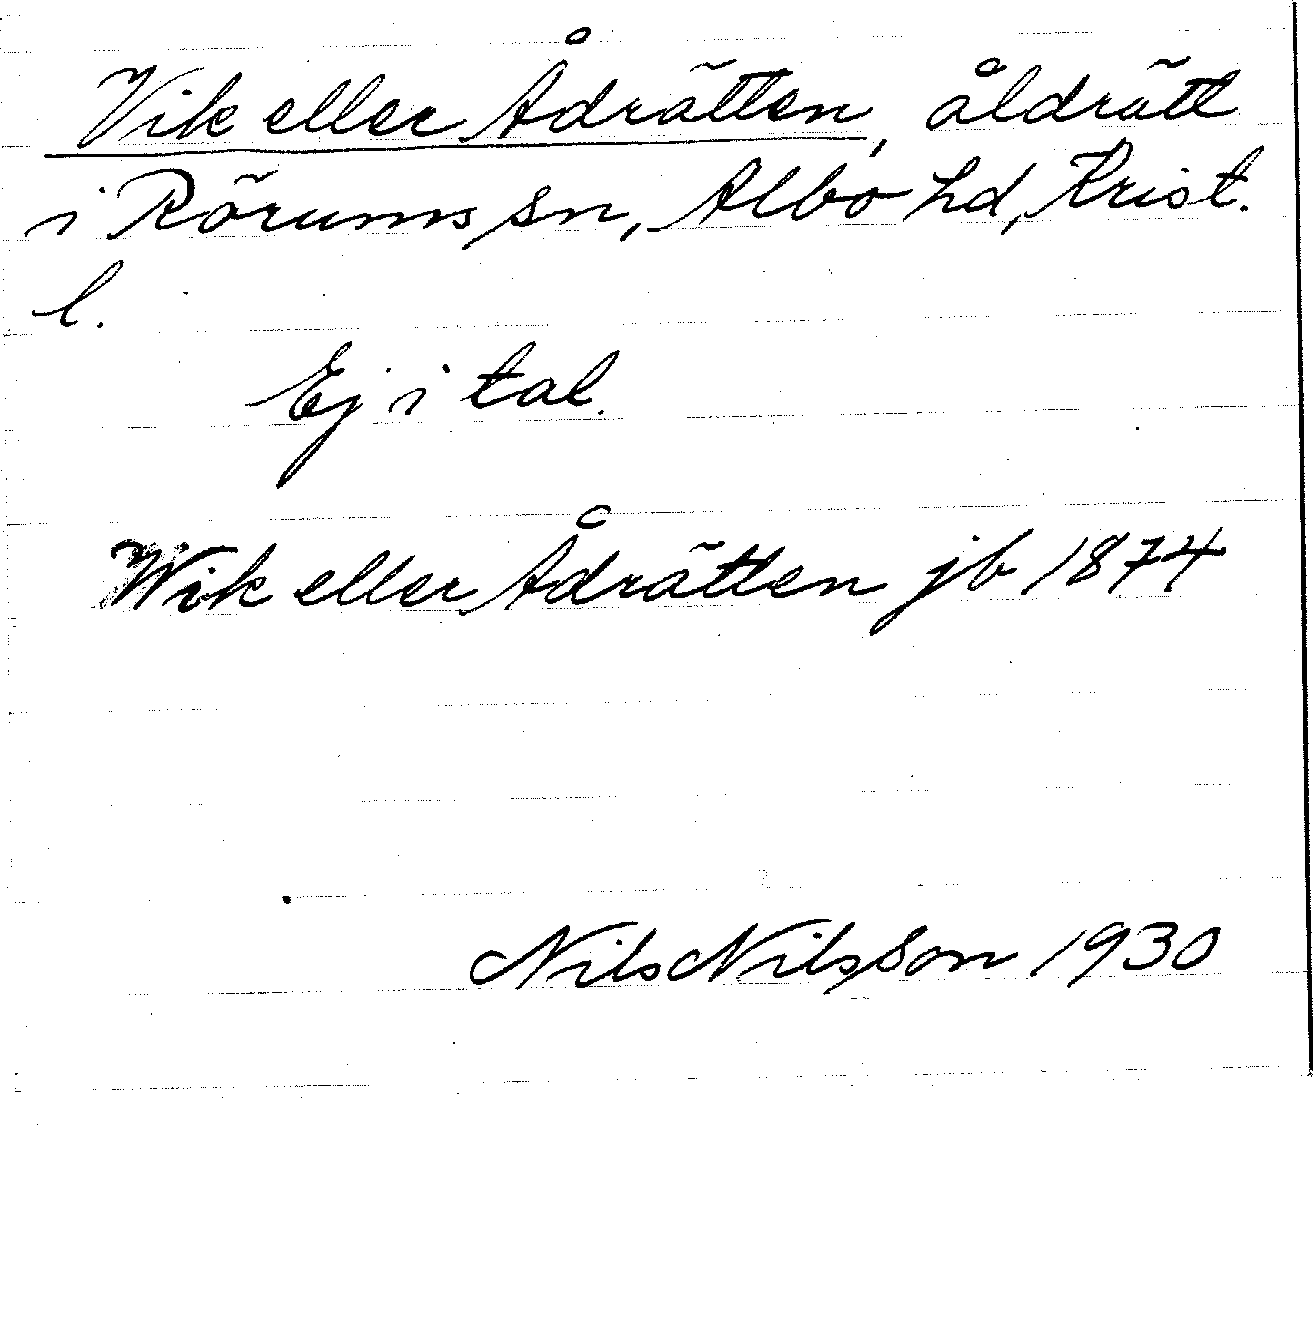 Vik eller Ådrätten, åldrätt
i Rörums sn, Albo hd, Krist.
l.
Ej i tal.
Wik eller Ådrätten jb 1874
Nils Nilsson 1930